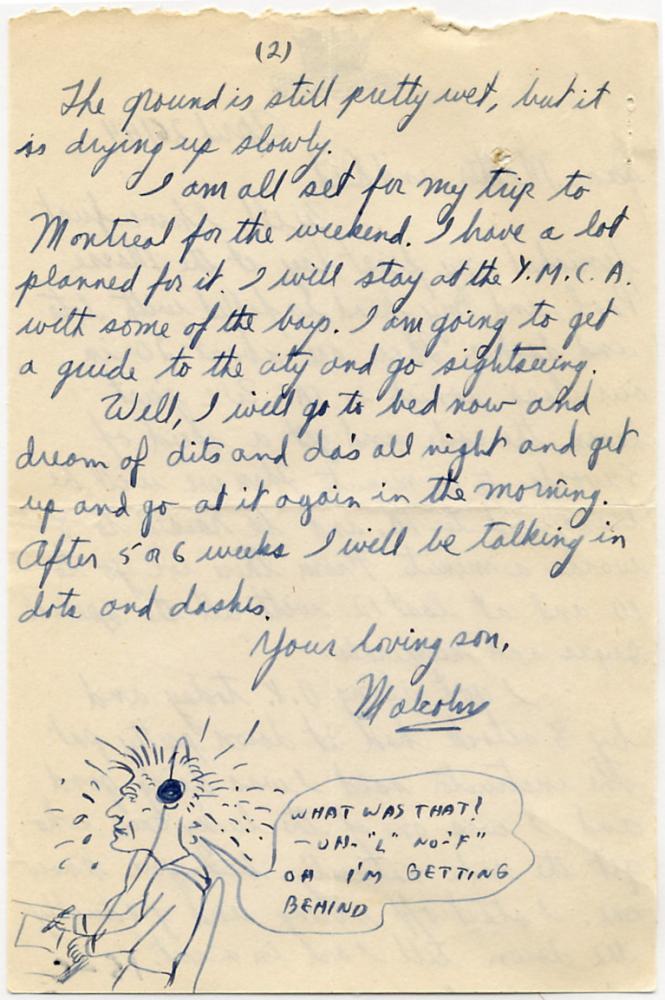 (2)
The ground is still pretty wet, but it
is drying up slowly.
I am all set for my trip to
Montreal for the weekend. I have a lot
planned for it. I will stay at the Y.M.C.A.
with some of the boys. I am going to get
a guide to the city and go sightseeing.
Well, I will go to bed now and
dream of dits and da's all night and get
up and go at it again in the morning.
After 5 or 6 weeks I will be talking in
dots and dashes.
Your loving son,
Malcolm
WHAT WAS THAT?
- UH - "L" NO - "F"
OH I'M GETTING
BEHIND